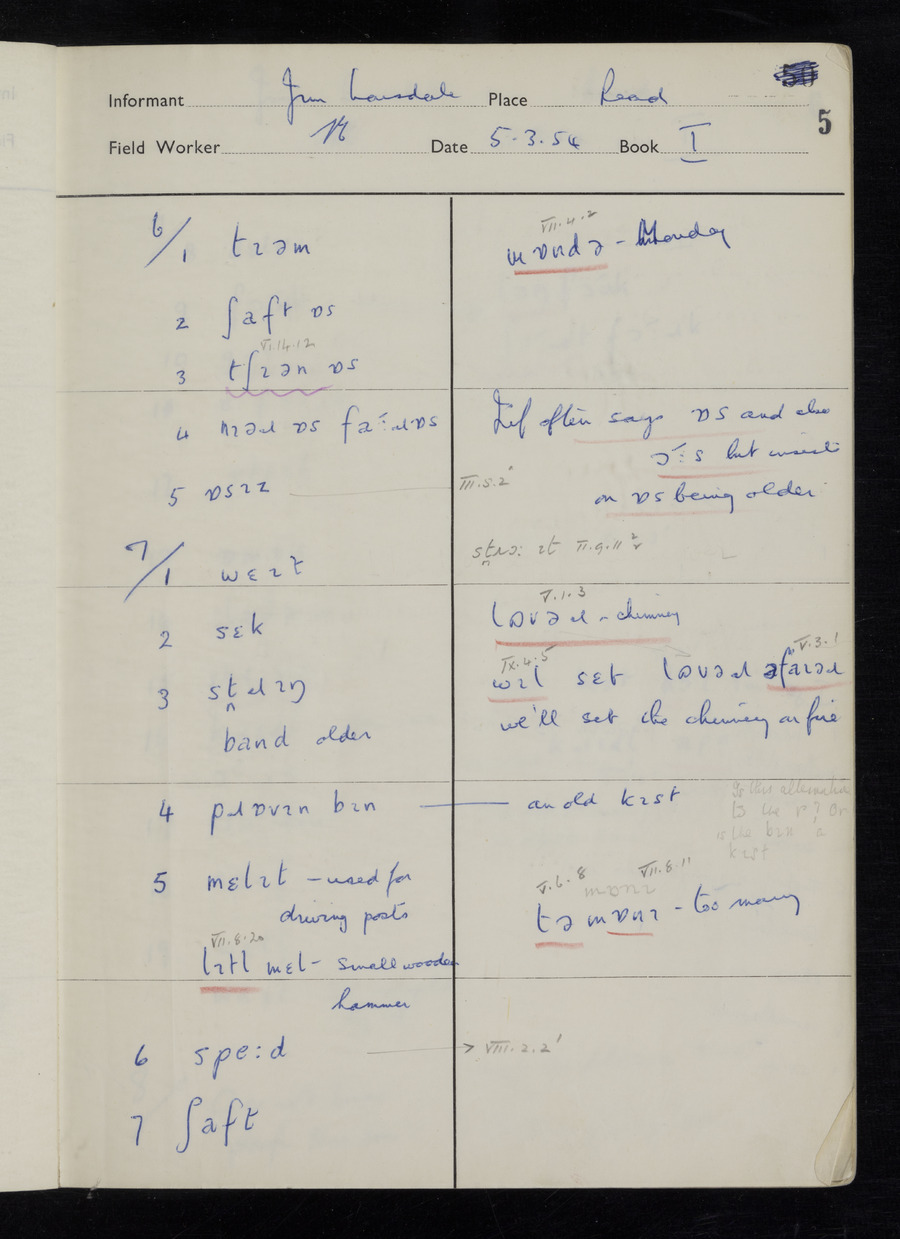 Informant Jim Lonsdale Place Read
5
Field Worker Date 5.3.54 Book I
6/1 tɹəm
2 ʃaft ɒs
VI.14.12
3 tʃɹən ɒs
4
5 ɒsɪz
7/1 wɛɪt
2 sɛk
3
band older
4
5 mɛlɪt – used for
driving posts
VII.8.20
lɪtl mɛl – small wooden
hammer
6 spe:d
7 ʃaft
VII.4.2
mɒndə – Monday
Inf often says ɒs and also
but insists
on ɒs being older
III.5.2
II.9.11
V.1.3
– chimney
IX.4.5 V.3.1
wɪl sɛt
we'll set the chimney on fire
an old kɪst
Is this alternative
to the r? Or
is the bɪn a
kɪst
V.6.8 VII.8.11
tə mɒnɪ – too many
VIII.2.2